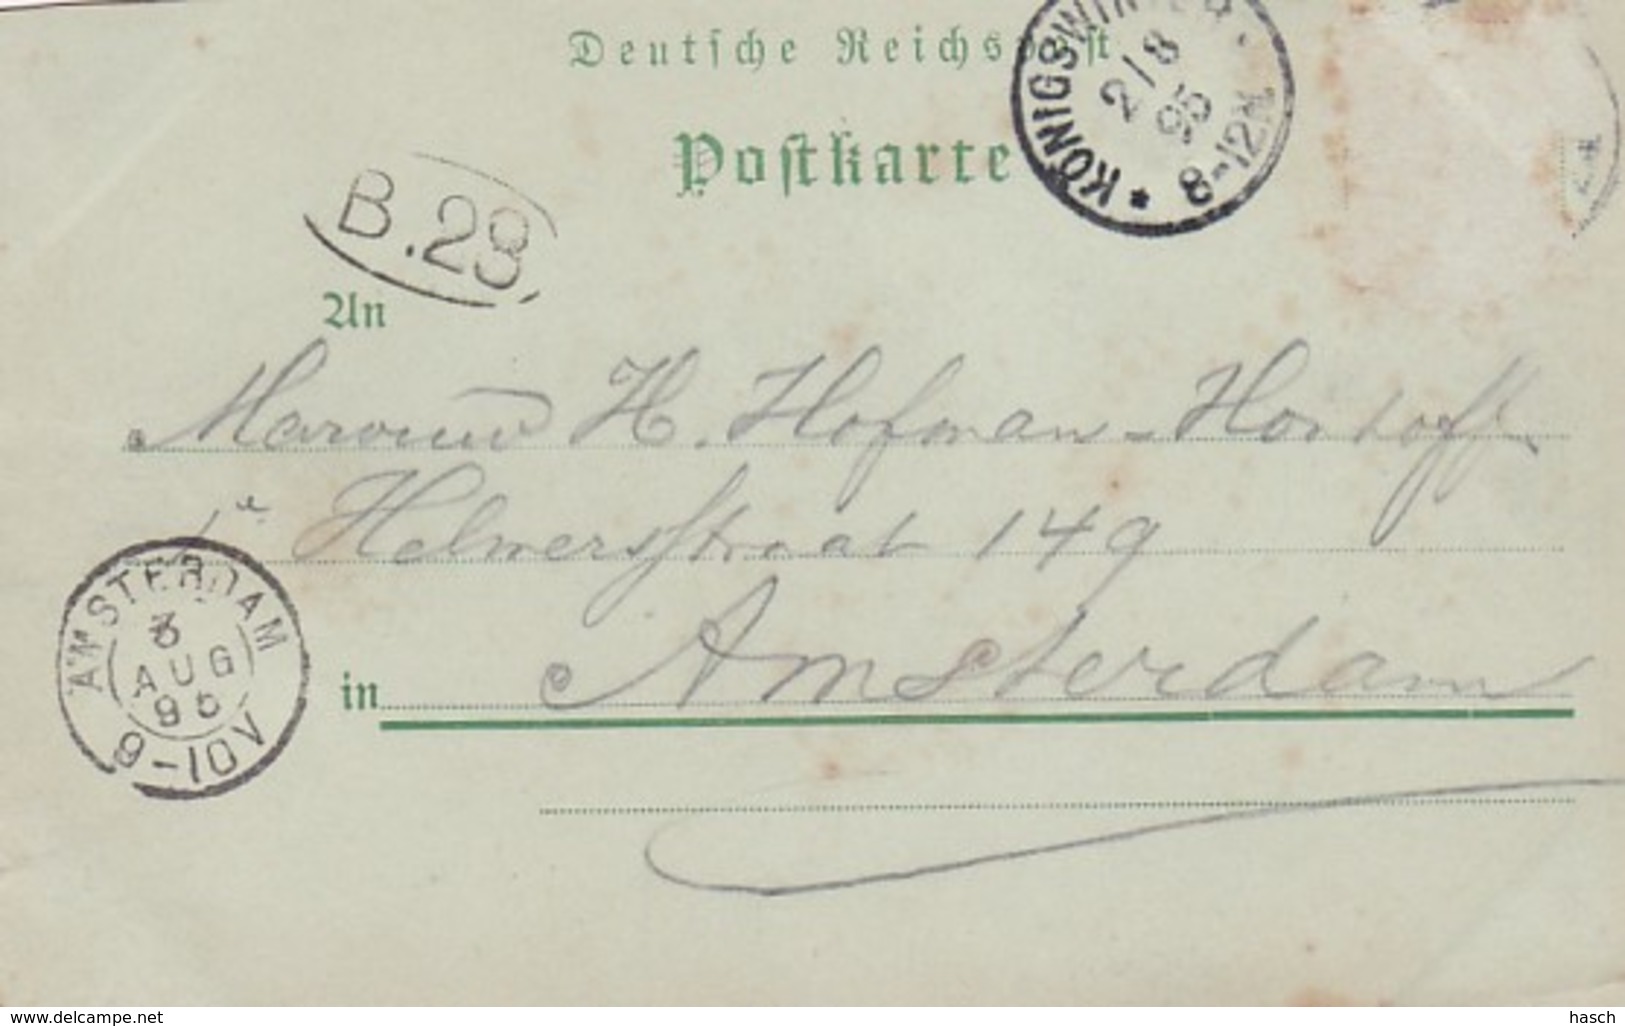 Deutsche Reichspost
Postkarte
KÖNIGSWINTER.
2/8
95
8-12N.
*
B.23
An
Mevrouw H. Hofman-Horhoff
1e Helmersstraat 149
in Amsterdam
AMSTERDAM
3
AUG
95
9-10V
www.delcampe.net
hasch